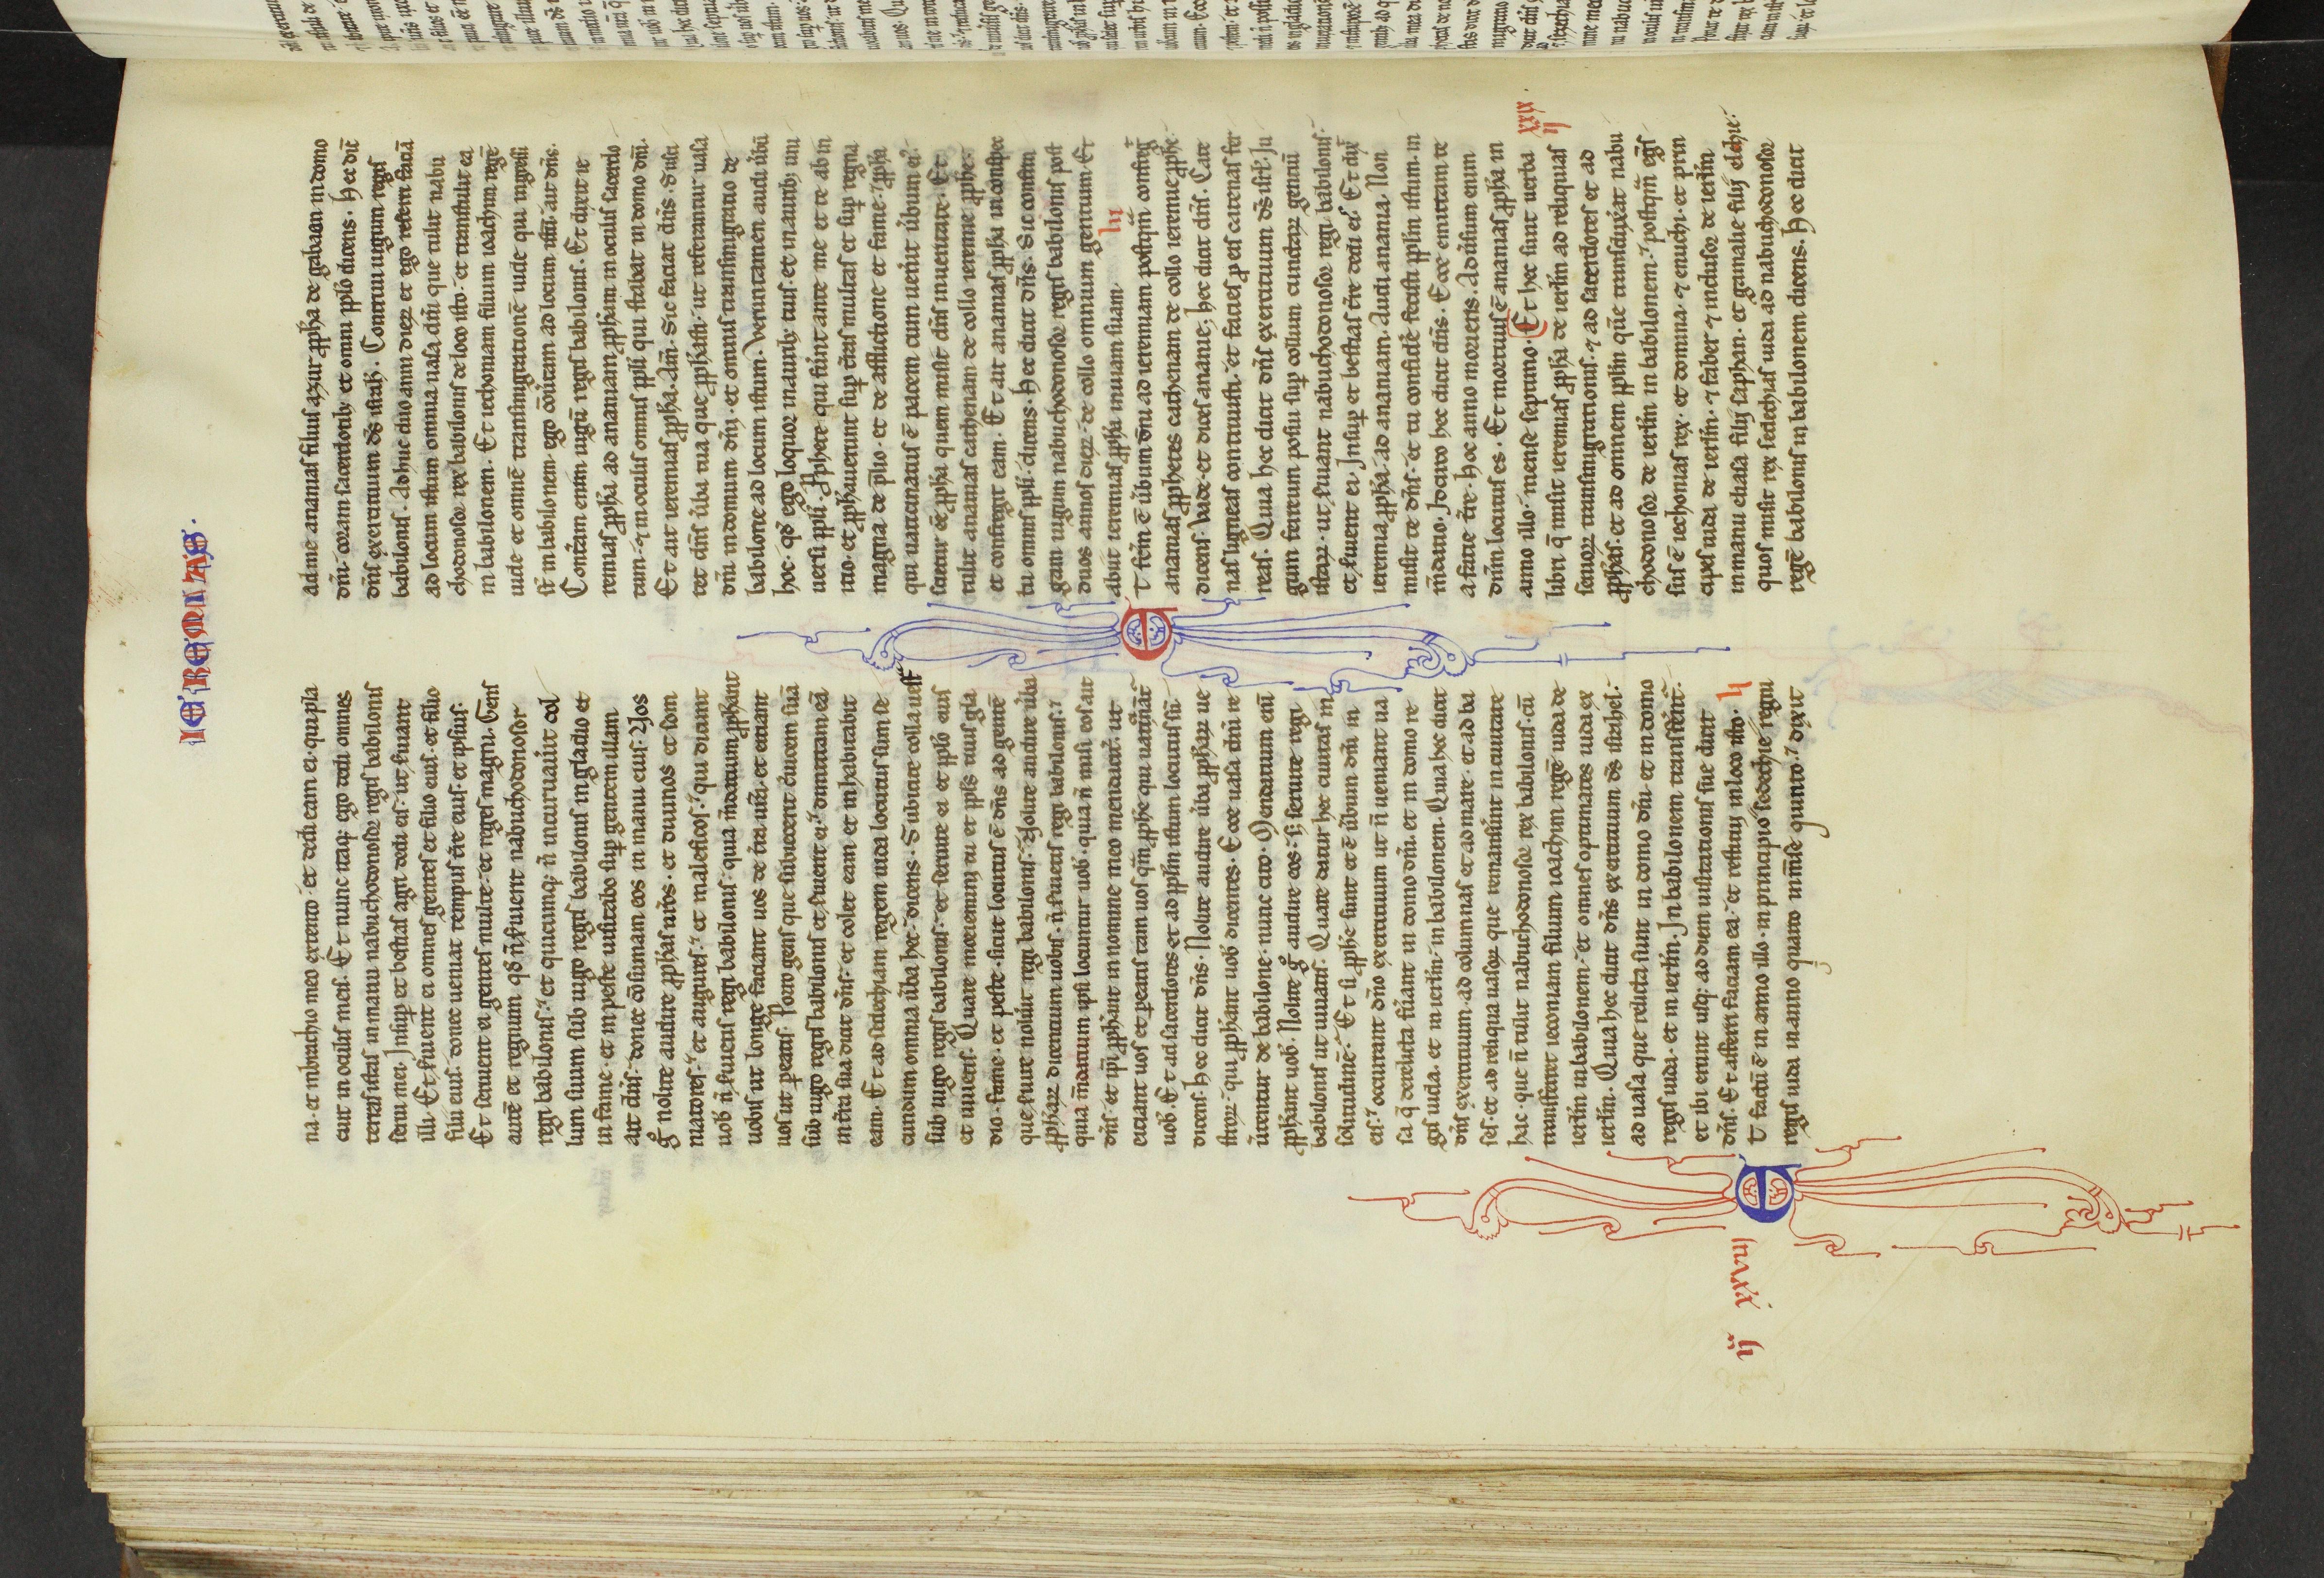 IEREMIAS.
na. et in brachio meo extento. et dedi eam ei. qui pla
cuit in oculis meis. Et nunc itaq; ego dedi omnes
terras istas in manu nabuchodonosor regis babilonis
serui mei. Insup et bestias agri dedi ei. ut seruiant
illi. Et seruient ei omnes gentes et filio eius. et filio
filii eius. donec ueniat tempus tr̄e eius. et ipsius.
Et seruient ei gentes multe. et reges magni. Gens
autē et regnum qd̄ n̄ seruient nabuchodonosor
regi babilonis. et quicumq; n̄ incuruauit col
lum suum sub iugo regis babilonis in gladio et
in fame. et in peste uisitabo sup gentem illam
ait dn̄s. donec cōsumam eos in manu eius. Uos
g° nolite audire pphas ur̄os. et diuinos et som
niatores. et augures. et maleficos. qui dicunt
uob n̄ seruietis regi babilonis. quia m̄dacium pphant
uobis ut longe faciant uos de tr̄a ur̄a. et eiciant
uos ut pereatis. Porro gens que subiecerit ceruicem suā
sub iugo regis babilonis et seruierit ei. dimittam eā
in tr̄a sua dicit dn̄s. et colet eam et inhabitabit
eam. Et ad sedechiam regem iuda locutus sum se
cundum omnia ūba hec. dicens. Subicite colla uess
sub iugo regis babilonis. et seruite ei et pplo eius
et uiuetis. Quare moriemini tu et ppls tuus gla
dio. fame. et peste. sicut locutus ē dn̄s ad gentē
que seruire noluit regi babilonis. Nolite audire ūba
pphar dicentium uobis. n̄ seruietis regi babilonis.
quia m̄dacium ipsi locuntur uob. quia n̄ misi eos ait
dn̄s. et ipi pphant in nomine meo mendaciter. ut
eiciant uos et pereatis tam uos qm̄ pphe qui uaticinat̄
uob. Et ad sacerdotes et ad pplm istum locutus sū.
dicens. Hec dicit dn̄s. Nolite audire ūba pphar ue
stror. qui pphant uob dicentes. Ecce uasa dn̄i re
uertentur de babilone. nunc cito. Mendacium eni
pphant uob. Nolite g° audire eos. s; seruite regi
babilonis ut uiuatis. Quare datur hec ciuitas in
solitudinē. Et si pphe sunt et ē ūbum dn̄i in
eis. occurrant dn̄o exercituum ut n̄ ueniant ua
sa q̄ derelicta fuerant in domo dn̄i. et in domo re
gis iuda. et in ierlm̄. in babilonem. Quia hec dicit
dn̄s exercituum. ad columnas et ad mare. et ad ba
ses. et ad reliqua uasor que remanserunt in ciuitate
hac. que n̄ tulit nabuchodonosor rex babilonis. cū
transferret ieconiam filium ioachim regē iuda de
ierlm̄ in babilonem. et omnes optimates iuda ex
ierlm̄. Quia hec dicit dn̄s exercituum ds̄ israhel.
ad uasa que relicta sunt in domo dn̄i. et in domo
regis iuda. et in ierlm̄. In babilonem transferent̄.
et ibi erunt usq; ad diem uisitationis sue dicit
dn̄s. Et afferri faciam ea. et restitui in loco isto.
Et factū ē in anno illo. in principio sedechie regni
regis iuda in anno quarto in mēse quinto. dixit
xxviii
ad me ananias filius azur ppha de gabaon in domo
dn̄i. coram sacerdotib; et omni pplo dicens. Hec dic̄
dn̄s exercituum ds̄ israhel. Contriui iugum regis
babilonis. Adhuc duo anni dier et ego referri faciā
ad locum istum omnia uasa dn̄i que tulit nabu
chodonosor rex babilonis de loco isto. et transtulit ea
in babilonem. Et iechoniam filium ioachim regē
iude et omnē transmigrationē iude qui ingressi
st̄ in babilonem. ego cōuertam ad locum istū. ait dn̄s.
Conteram enim iugū regis babilonis. Et dixit ie
remias ppha ad ananiam ppham in oculis sacerdo
tum. et in oculis omnis ppli qui stabat in domo dn̄i.
Et ait ieremias ppha. Am̄. Sic faciat dn̄s. Susci
tet dn̄s ūba tua que pphasti. ut referantur uasa
dn̄i in domum dn̄i. et omnis transmigratio de
babilone ad locum istum. Veruntamen audi ūbū
hoc. qd̄ ego loquor in aurib; tuis. et in aurib; uni
uersi ppli. Pphete. qui fuerunt ante me et te ab in
itio. et pphauerunt sup tr̄as multas et sup regna
magna de plio. et de afflictione et fame. ppha
qui uaticinatus ē pacem cum uenerit ūbum ei'.
scietur ēē ppha quem misit dn̄s in ueritate. Et
tulit ananias cathenam de collo ieremie pphe.
et confregit eam. Et ait ananias ppha in conspec
tu omnis ppli. dicens. Hec dicit dn̄s. Sic confrin
gam iugum nabuchodonosor regis babilonis post
duos annos dier. de collo omnium gentium. Et
abiit ieremias ppha in uiam suam.
Et fctm̄ ē ūbum dn̄i ad ieremiam postqm̄ confreḡ
ananias pphetes cathenam de collo ieremie pphe.
dicens. Vade. et dices ananie; hec dicit dn̄s. Cate
nas ligneas contriuisti. et facies p eis catenas fer
reas. Quia hec dicit dn̄s exercituum ds̄ isrl̄. Iu
gum ferreum posui sup collum cunctar gentiū
istar. ut seruiant nabuchodonosor regi babilonis.
et seruient ei. Insup et bestias tr̄e dedi ei. Et dix̄
ieremia ppha. ad ananiam. Audi anania. Non
misit te dn̄s. et tu confidē fecisti pplm istum. in
m̄dacio. Idcirco hec dicit dn̄s. Ecce emittam te
a facie tr̄e. Hoc anno morieris. Aduersum enim
dn̄m locutus es. Et mortuus ē ananias ppha in
anno illo. mense septimo. Et hec sunt uerba xxix.
libri q̄ misit ieremias ppha de ierlm̄ ad reliquias
senior transmigrationis. et ad sacerdotes et ad
pphas. et ad omnem pplm que transduxerat nabu
chodonosor de ierlm̄ in babilonem. postqm̄ egs̄
sus ē iechonias rex. et domina. et enuchi. et prin
cipes iuda de ierlm̄. et faber et inclusor de ierlm̄
in manu elasa filij saphan. et gamalie filij elchie.
quos misit rex sedechias iuda ad nabuchodonosor
regē babilonis in babilonem dicens. Hec dicit